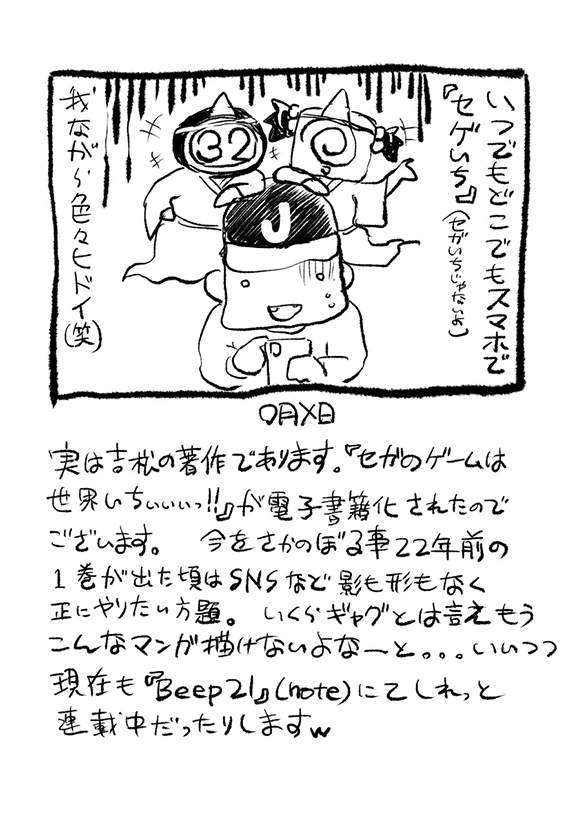 いつでもどこでもスマホで
『セゲいち』(セガいちじゃないよ)
32
J
我ながら色々ヒドイ(笑)
〇月×日
実は吉松の著作であります。『セガのゲームは
世界いちぃぃぃっ!!』が電子書籍化されたので
ございます。 今をさかのぼる事22年前の
1巻が出た頃はSNSなど影も形もなく
正にやりたい方題。 いくらギャグとは言えもう
こんなマンガ描けないよなーと。。。いいつつ
現在も『Beep21』(note)にてしれっと
連載中だったりしますw